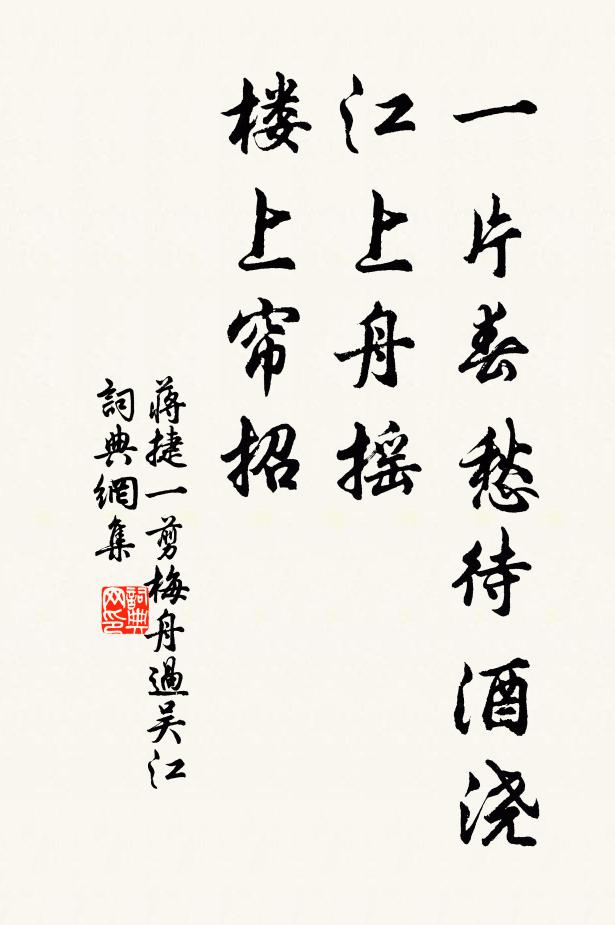 一片春愁待酒浇
江上舟摇
楼上帘招
蔣捷一剪梅舟過吴江
詞典網集
詞典网印